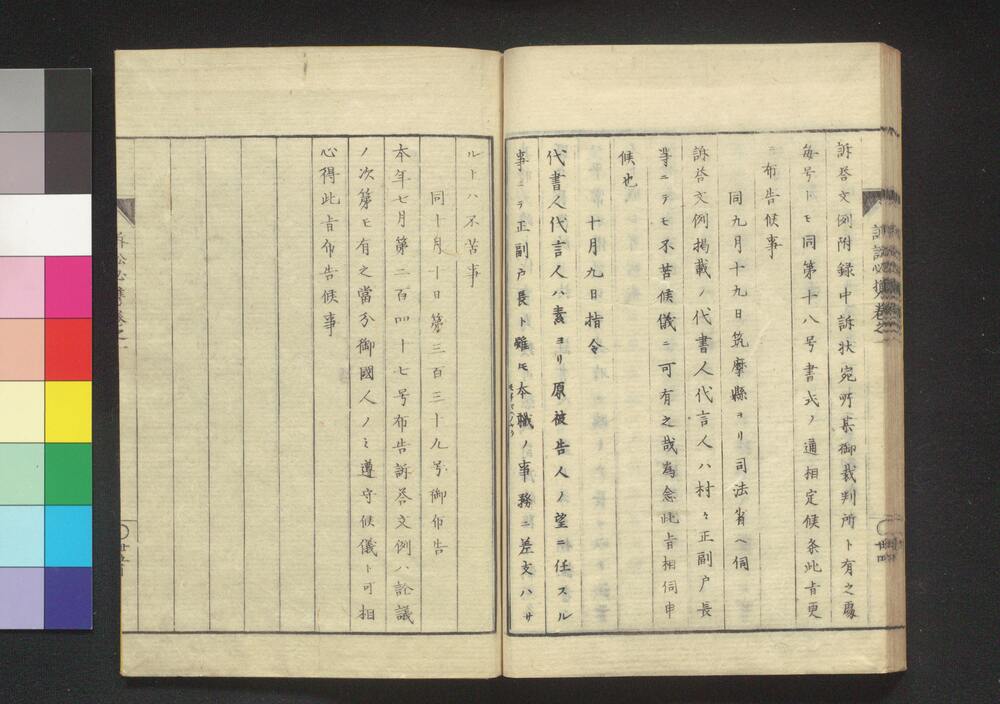 訴答文例附録中訴状宛所某御裁判所ト有之處
毎号トモ同第十八号書式ノ通相定候条此旨更
ニ布告候事
同九月十九日筑摩縣ヨリ司法省ヘ伺
訴答文例掲載ノ代書人代言人ハ村々正副戸長
等ニテモ不苦候儀ニ可有之哉為念此旨相伺申
候也
十月九日指令
代書人代言人ハ素ヨリ原被告人ノ望ニ任スル
事ニテ正副戸長ト雖モ本職ノ事務ニ差支ハサ
ルトハ不苦事
同十月十日第三百三十九号御布告
本年七月第二百四十七号布告訴答文例ハ詮議
ノ次第モ有之當分御國人ノミ遵守候儀ト可相
心得此旨布告候事